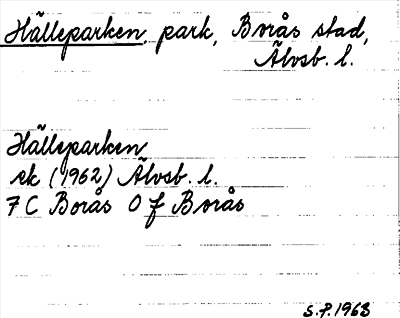 Hälleparken, park, Borås stad,
Älvsb. l.
Hälleparken
ek (1962) Älvsb. l.
7 C Borås O f Borås
S.P. 1963